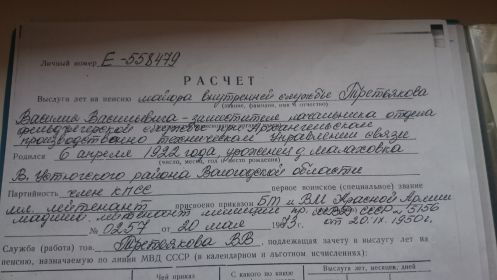 Личный номер Е-558479
РАСЧЕТ
Выслуги лет на пенсию майора внутренней службы Третьякова
(звание, фамилия, имя и отчество)
Василия Васильевича - заместителя начальника отдела
фельдъегерской службы при Архангельском
производственно техническом Управлении связи
Родился 6 апреля 1922 года, уроженец д. Малаховка
(число, месяц, год и место рождения)
В. Устюгского района Вологодской области
Партийность член КПСС первое воинское (специальное) звание
мл. лейтенант присвоено приказ БТ и ВМ Красной Армии
младший лейтенант милиции пр. СССР 5156
№ 0257 от 20 мая 1943 г. от 20.IX.1950г.
Служба (работа) тов. Третьякова В.В., подлежащая зачету в выслугу лет на
пенсию, назначаемую по линии МВД СССР (в календарном и льготном исчислениях):
Чей приказ
С какого по какое
Выслуга лет, месяцев, дней